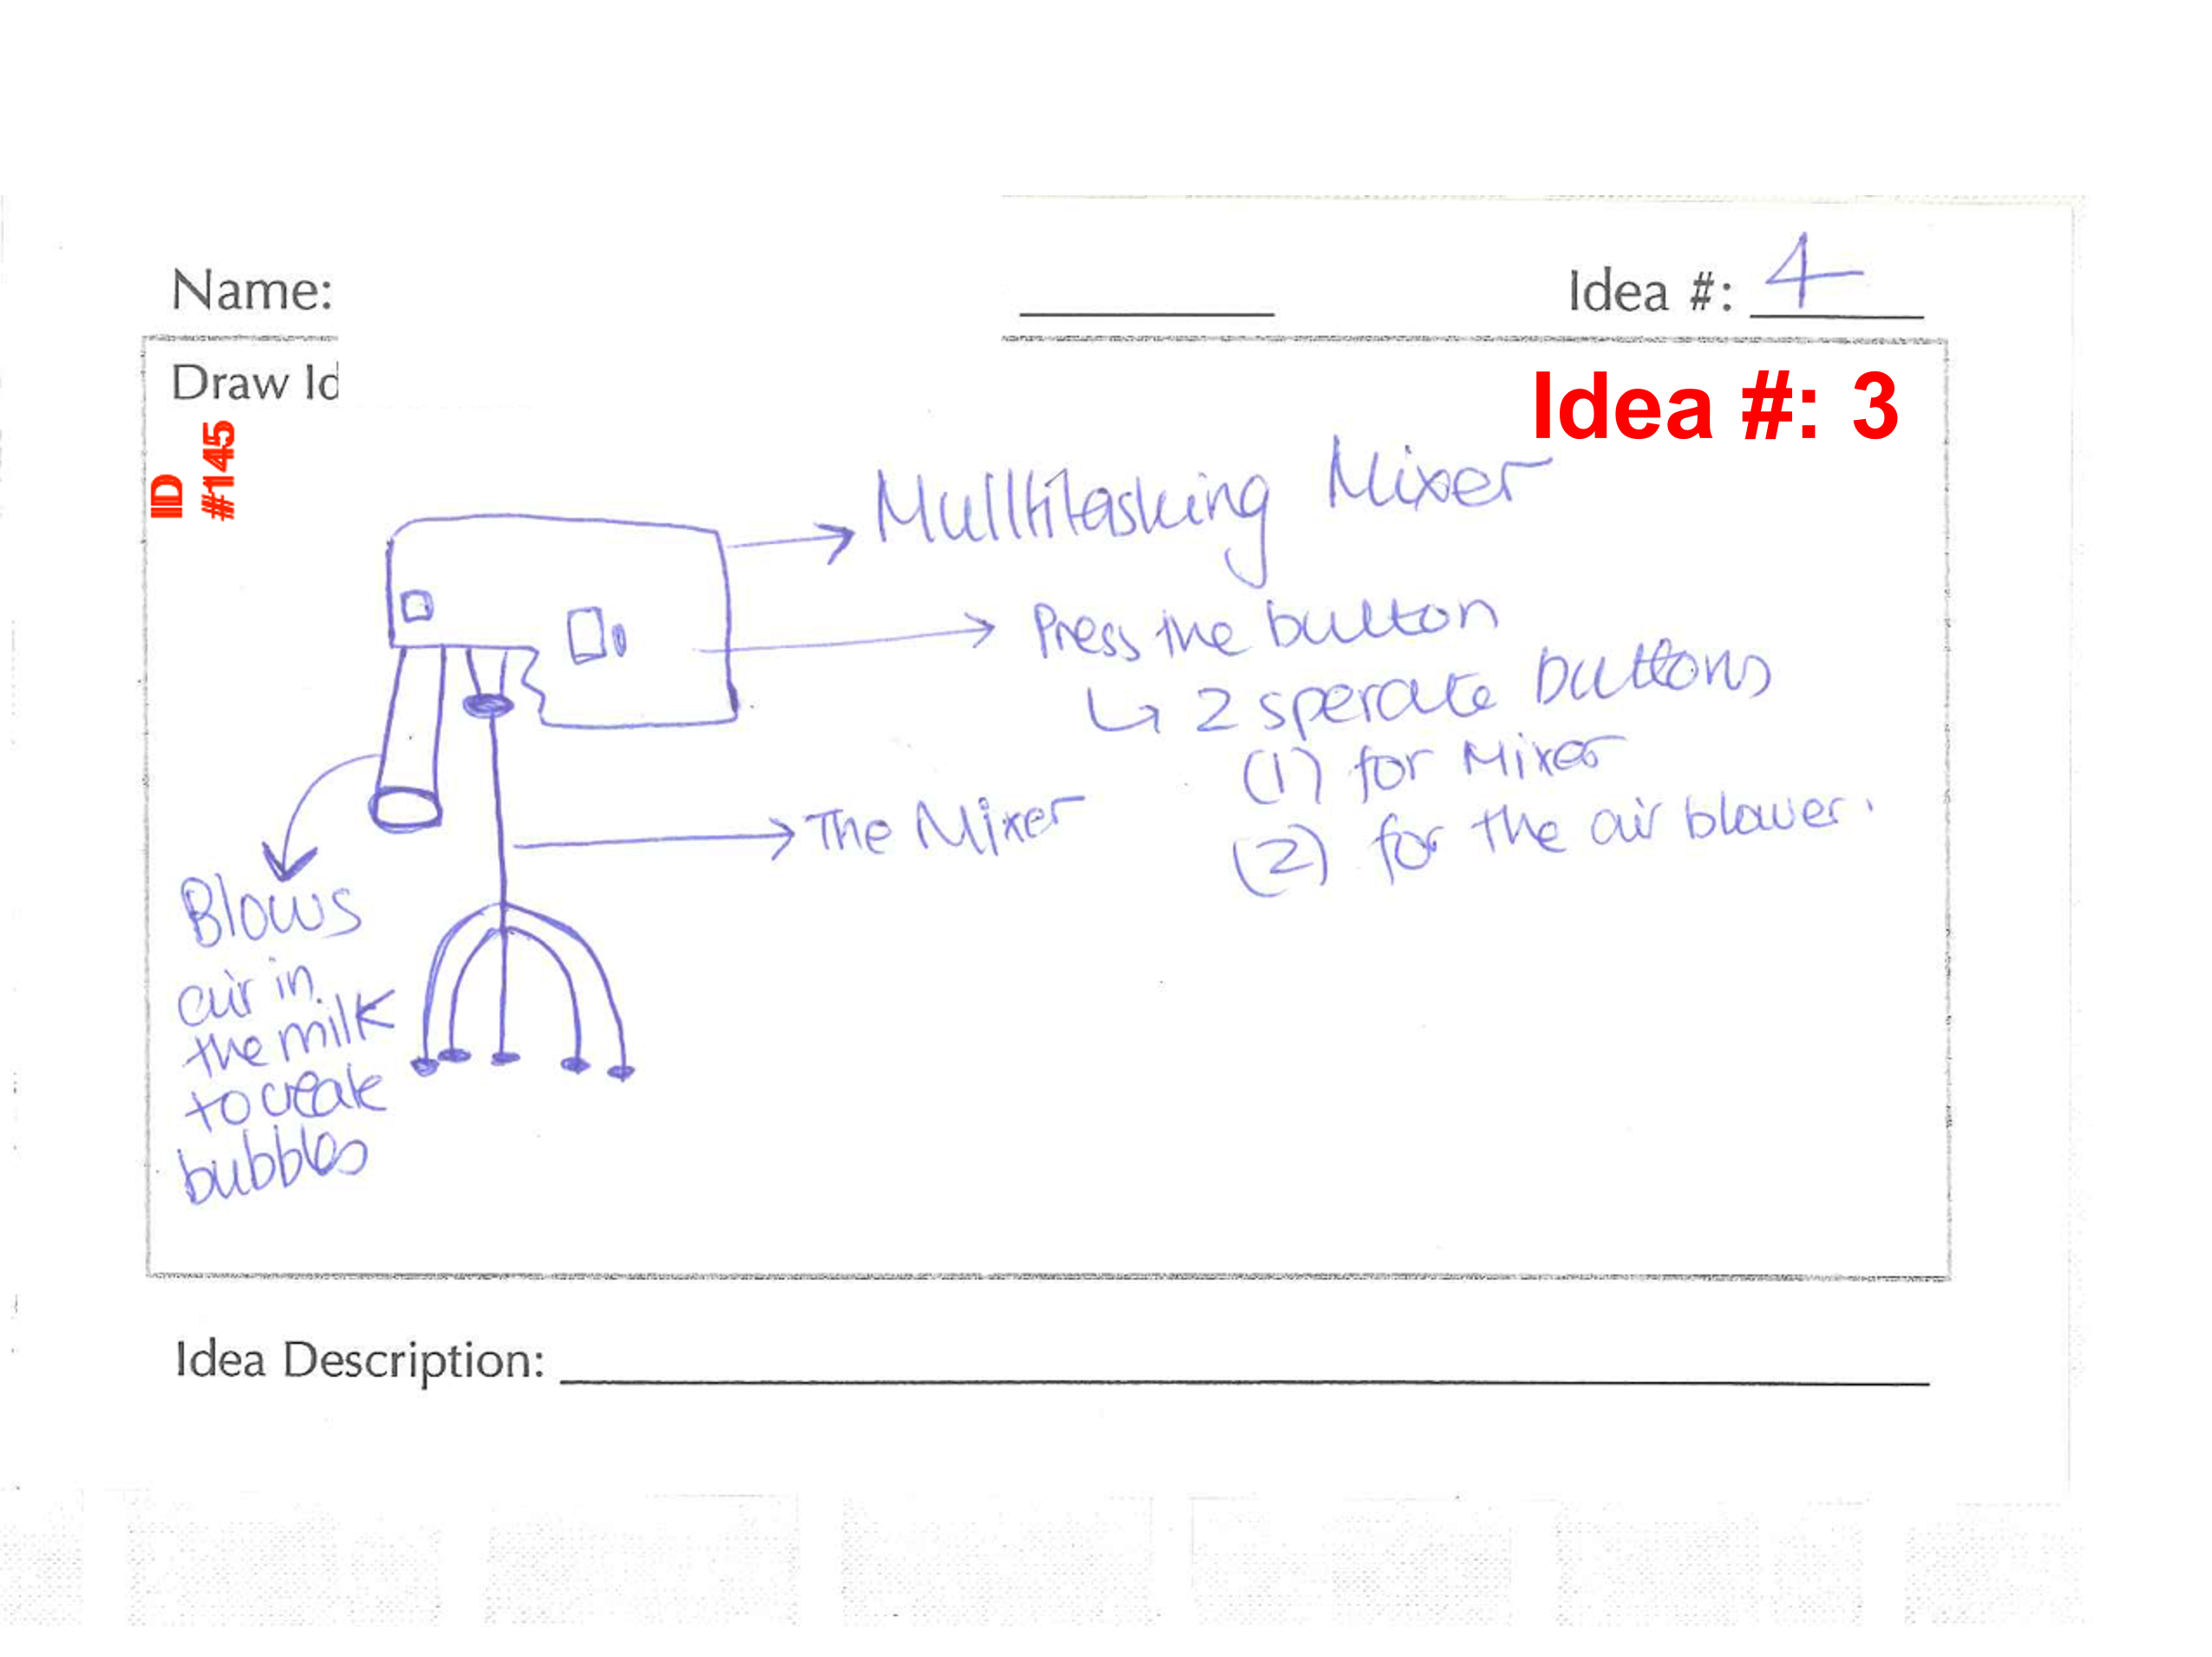 Name:
Idea #: 4
Draw Id
Idea #: 3
ID
#145
Mulltitasking Mixer
Press the button
↳ 2 sperate buttons
(1) for Mixer
(2) for the air blower.
The Mixer
Blows
air in
the milk
to create
bubbles
Idea Description: